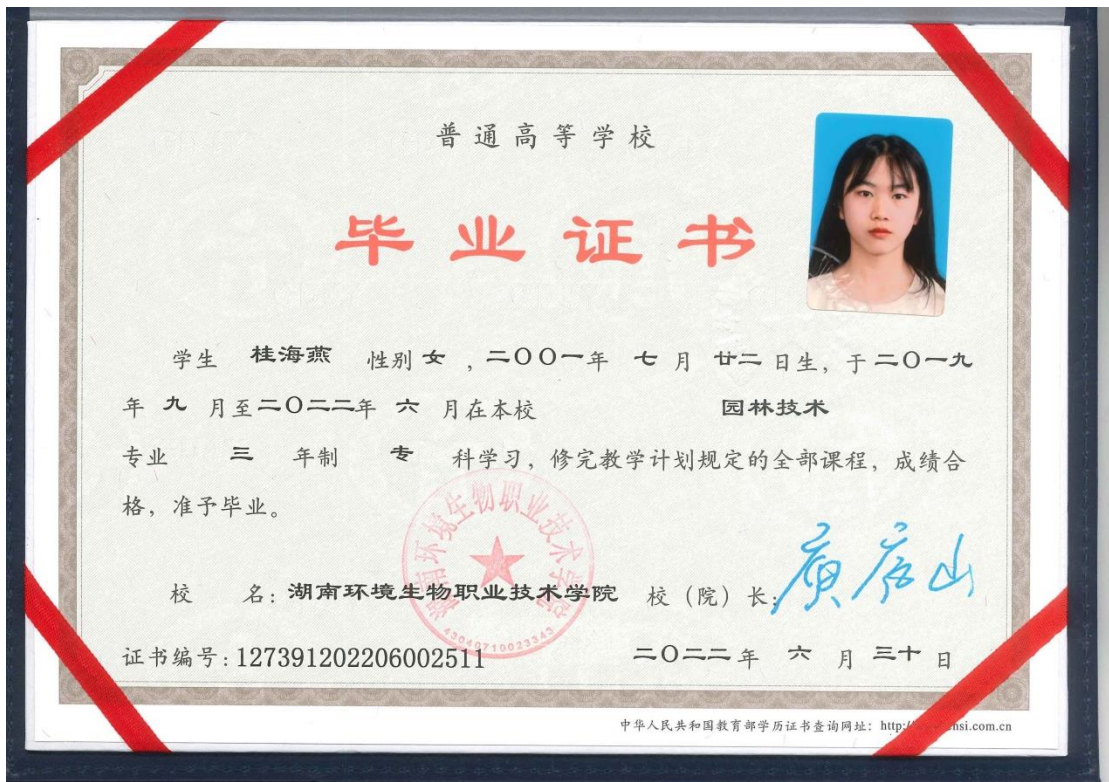 普通高等学校
毕业证书
学生 桂海燕 性别 女 ，二〇〇一年 七 月 廿二 日生，于二〇一九
年 九 月至二〇二二年 六 月在本校 园林技术
专业 三 年制 专 科学习，修完教学计划规定的全部课程，成绩合
格，准予毕业。
湖南环境生物职业技术学院
43040710023343
校 名：湖南环境生物职业技术学院 校（院）长：
证书编号：127391202206002511 二〇二二年 六 月 三十 日
中华人民共和国教育部学历证书查询网址：http:/ hsi.com.cn